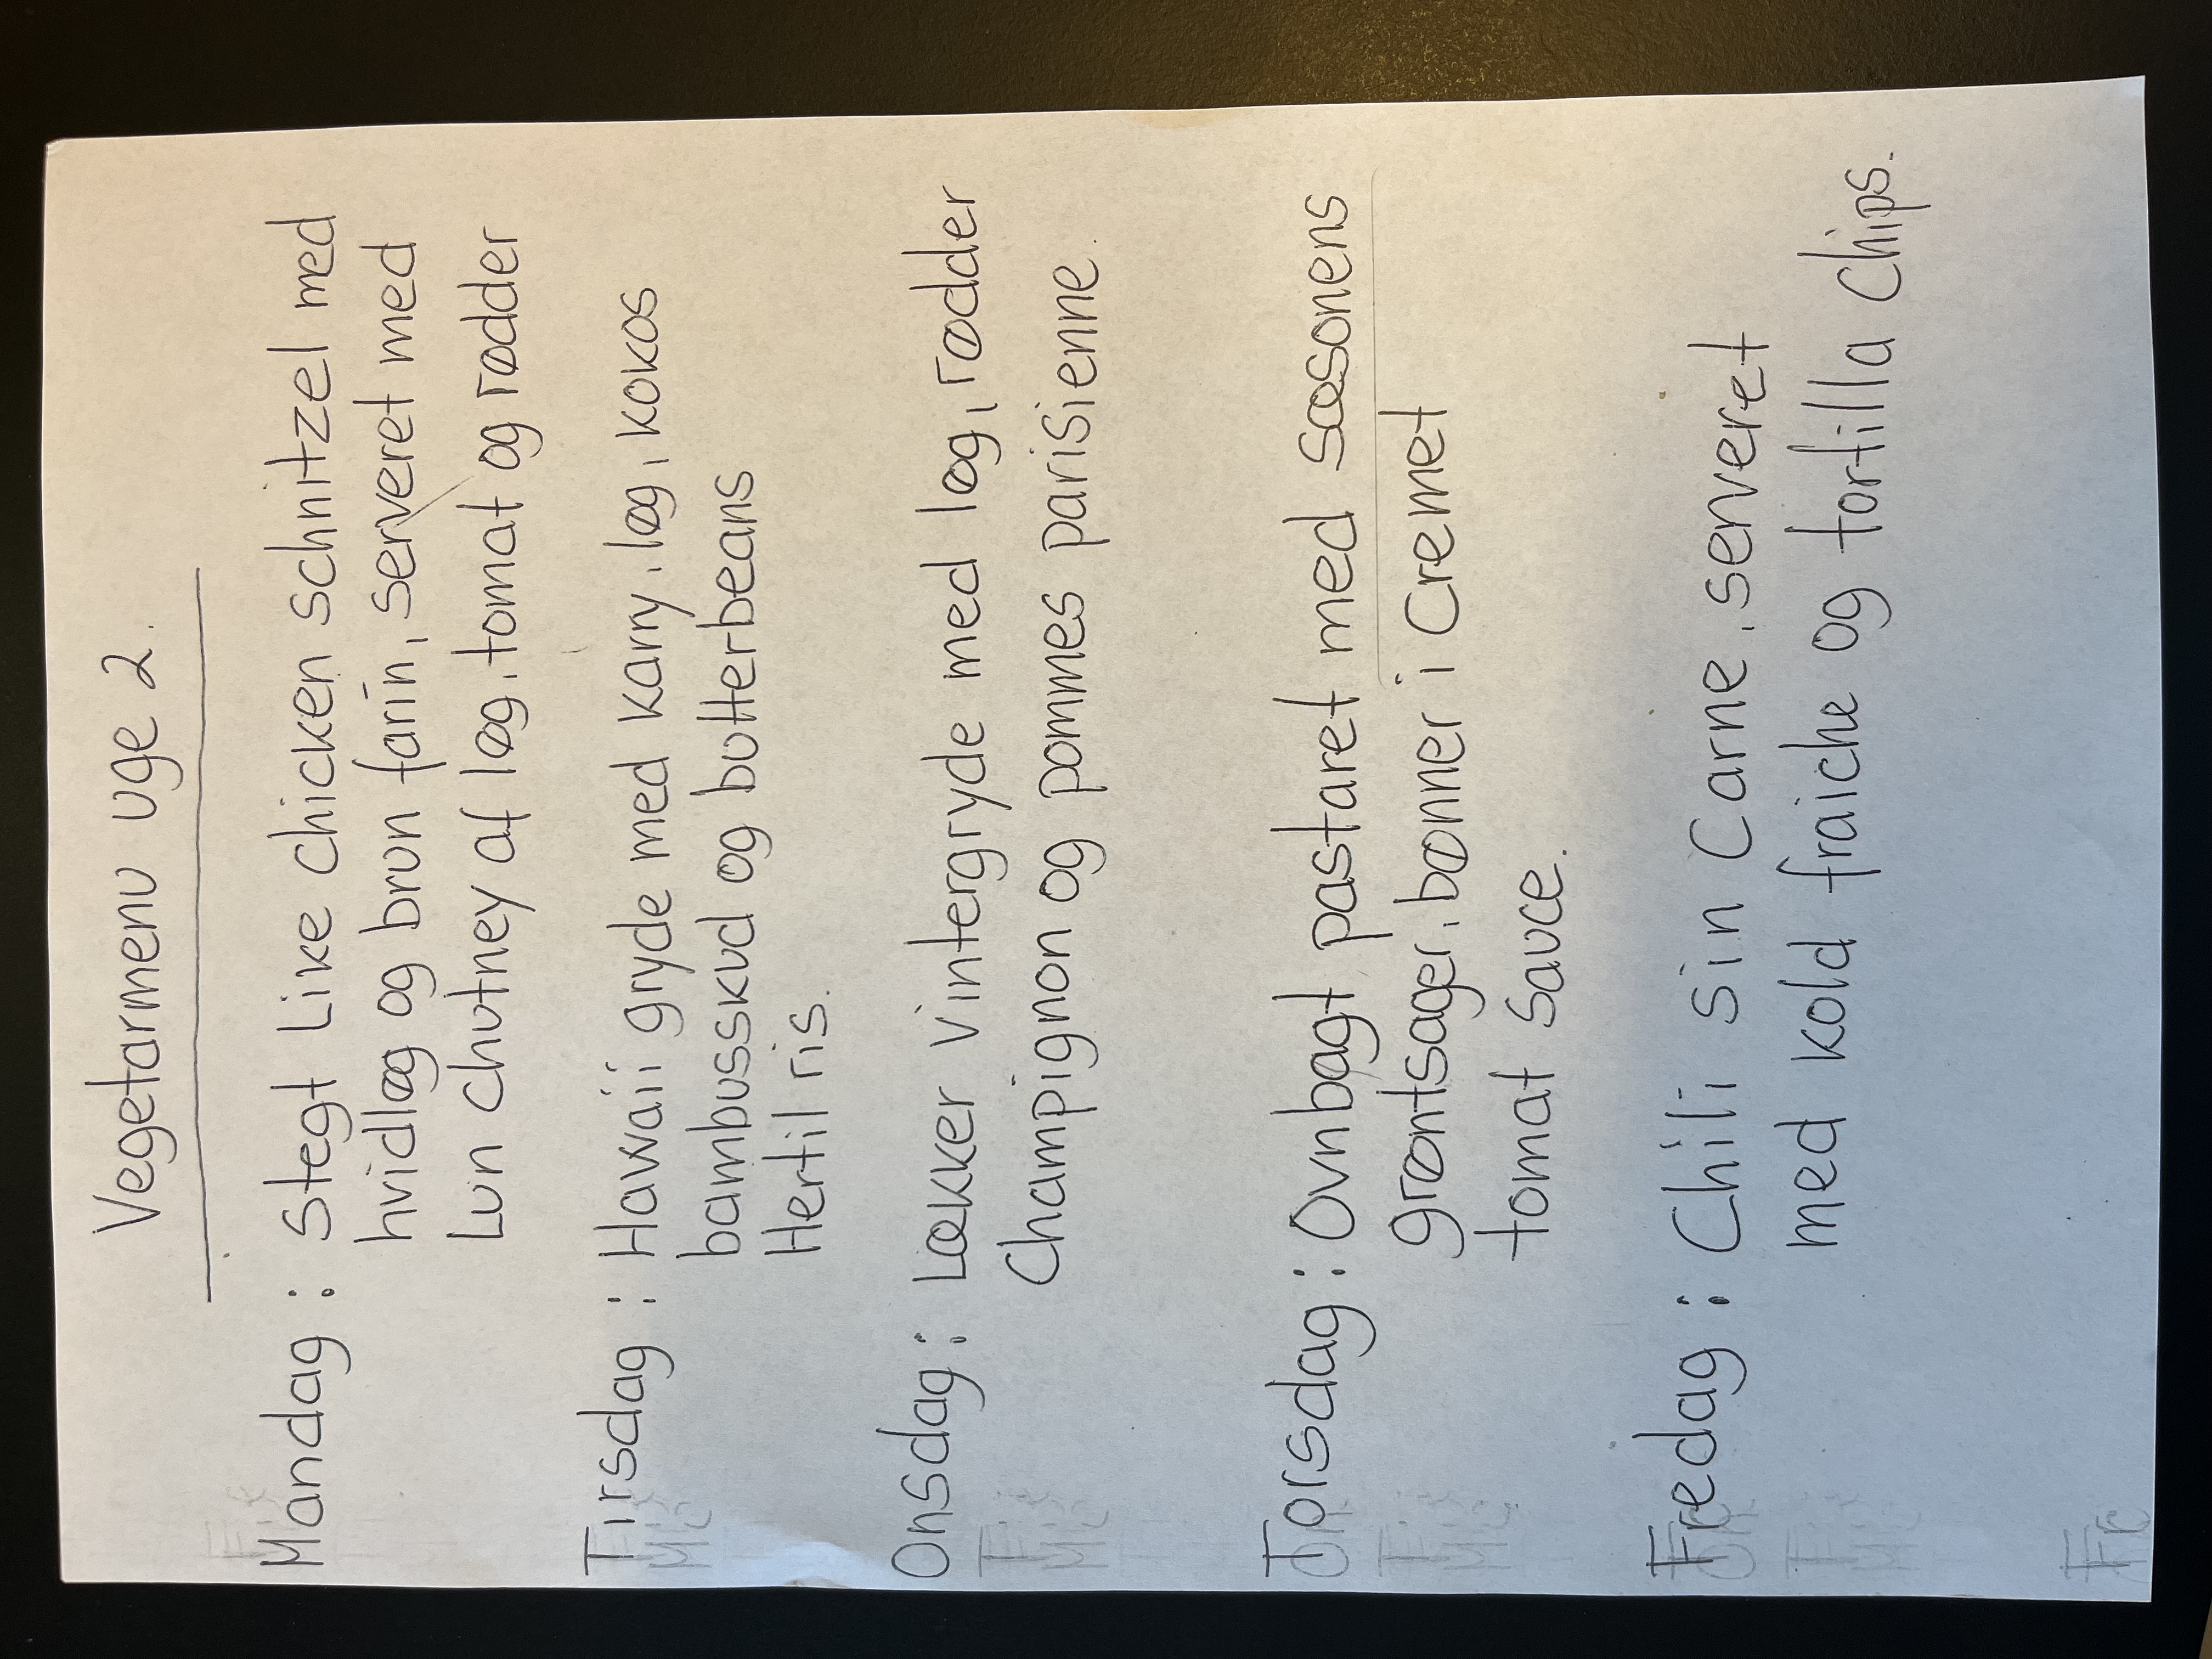 Vegetarmenu uge 2.
Mandag : Stegt Like chicken schnitzel med
hvidløg og brun farin, serveret med
Lun chutney af løg, tomat og rødder
Tirsdag : Hawaii gryde med karry, løg, kokos
bambusskud og butterbeans
Hertil ris.
Onsdag : Lækker vintergryde med løg, rødder
Champignon og pommes parisienne.
Torsdag : Ovnbagt pastaret med sæsonens
grøntsager, bønner i Cremet
tomat sauce.
Fredag : Chili sin Carne, serveret
med kold fraiche og tortilla chips.